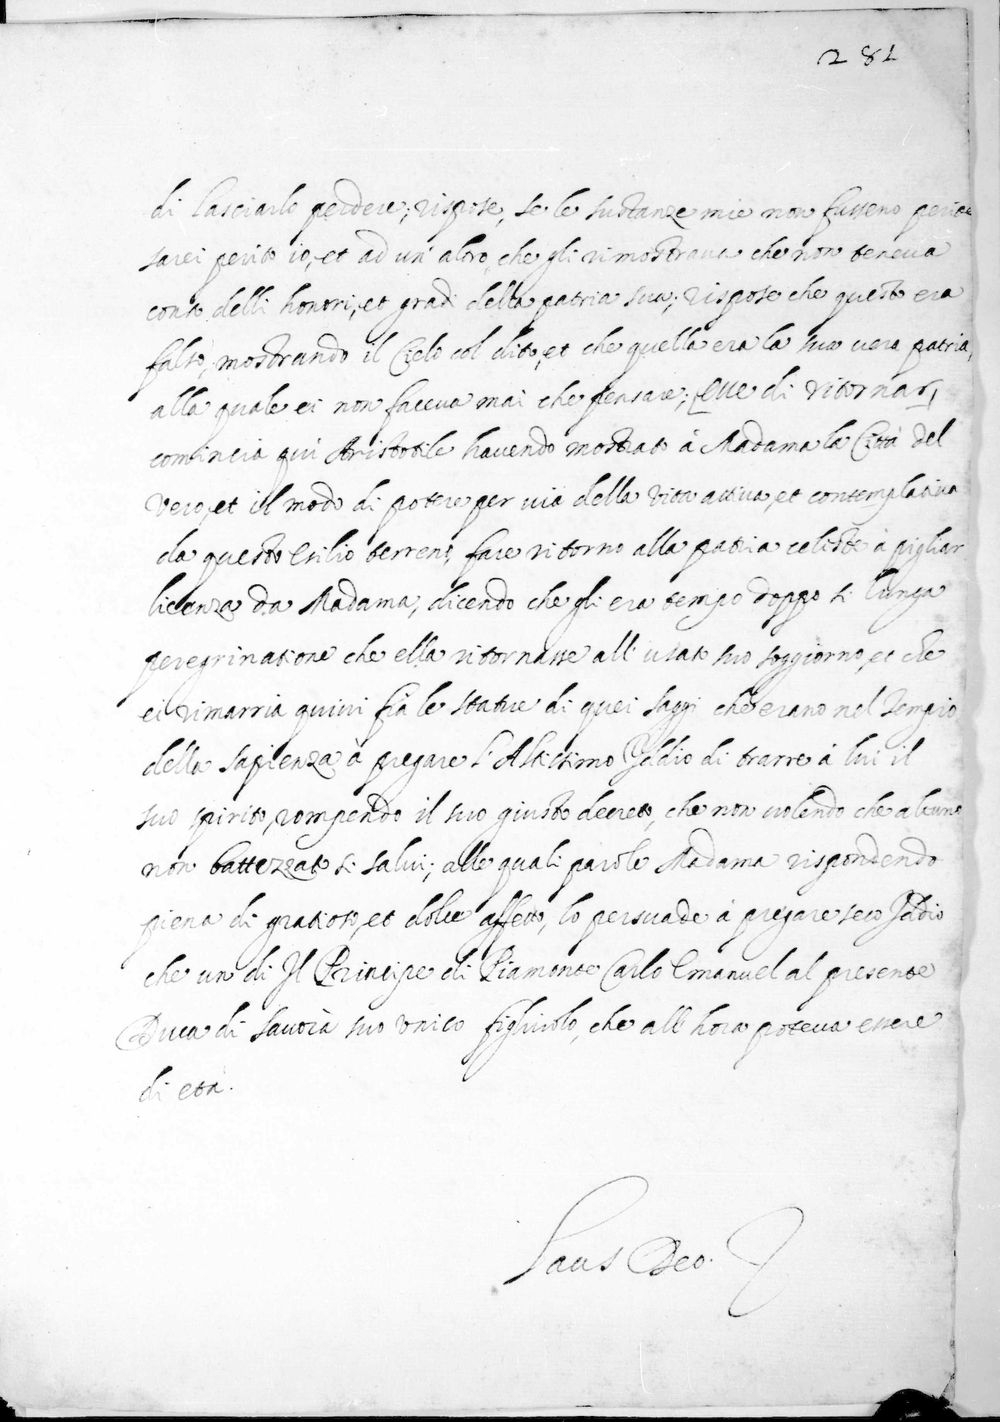 281
di lasciarlo perdere; rispose, se le sustanze mie non fusseno perite
sarei perito io, et ad un' altro, che gli rimostraua che non teneua
conto delli honori, et gradi della patria sua; rispose che questo era
falso, mostrando il Cielo col dito, et che quella era la sua uera patria,
alla quale ei non faceua mai che pensare; di ritornar,
comincia qui Aristotile hauendo mostrato à Madama la Città del
Vero, et il modo di potere per uia della vita attiua, et contemplatiua
da questo esilio terreno, fare ritorno alla patria celeste à pigliar
licenza da Madama, dicendo che gli era tempo doppo si lunga
peregrinatione che ella ritornasse all' usato suo soggiorno, et che
ei rimarria quiui frà le statue di quei saggi che erano nel tempio
della sapienza à pregare l' Altissimo Iddio di trarre à lui il
suo spirito, rompendo il suo giusto decreto, che non uolendo che alcuno
non battezzato si salui; alle quali parole Madama rispondendo
piena di gratioso, et dolce affetto, lo persuade à pregare seco Iddio
che un di Il Principe di Piamonte Carlo Emanuel al presente
Duca di Sauoia suo vnico figliuolo, che all' hora poteua essere
di età.
Laus Deo.